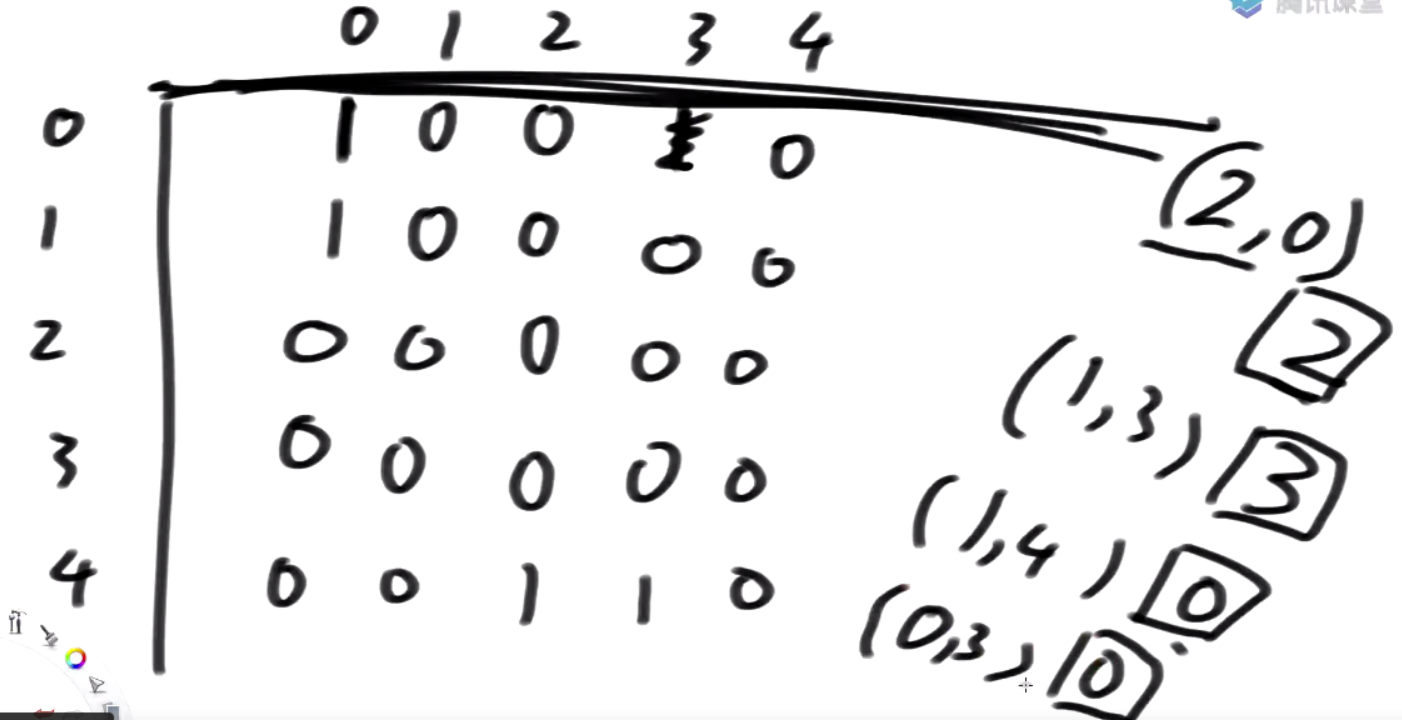 腾讯课堂
0 1 2 3 4
0 1 0 0 1 0
1 1 0 0 0 0
2 0 0 0 0 0
3 0 0 0 0 0
4 0 0 1 1 0
(2,0)
2
(1,3) 3
(1,4) 0
(0,3) 0